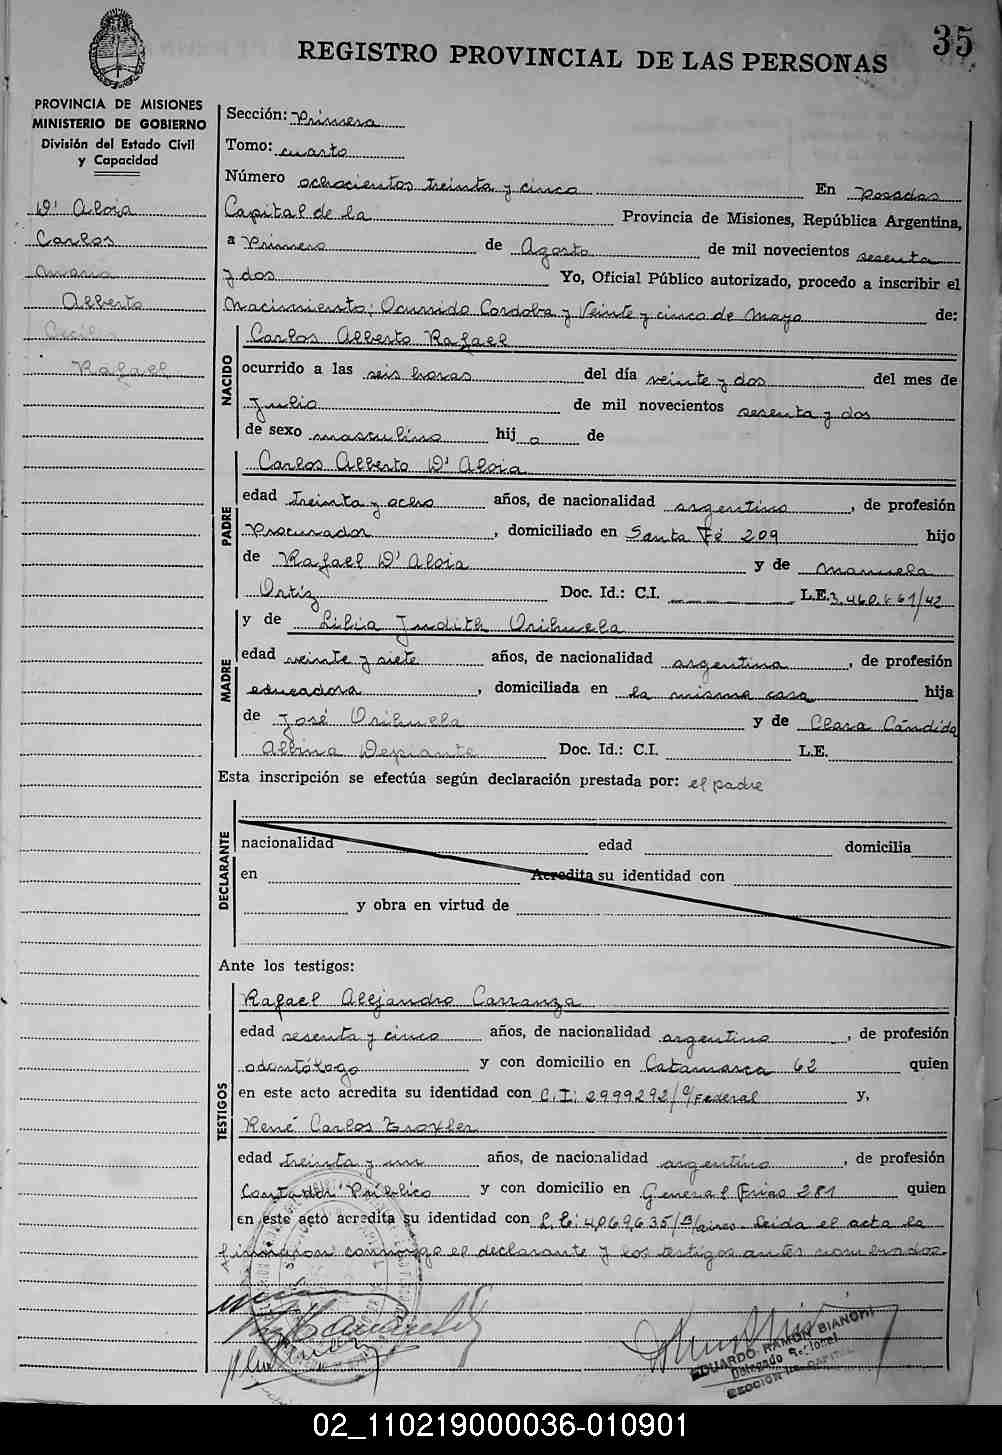 35
REGISTRO PROVINCIAL DE LAS PERSONAS
PROVINCIA DE MISIONES
MINISTERIO DE GOBIERNO
División del Estado Civil
y Capacidad
D' Aloia
Carlos
Alberto
Rafael
Sección: Primera
Tomo: cuarto
Número ochocientos treinta y cinco En Posadas
Capital de la Provincia de Misiones, República Argentina,
a Primero de Agosto de mil novecientos sesenta
y dos Yo, Oficial Público autorizado, procedo a inscribir el
Nacimiento; Ocurrido Cordoba y Veinte y cinco de Mayo de:
NACIDO
Carlos Alberto Rafael
ocurrido a las seis horas del día veinte y dos del mes de
Julio de mil novecientos sesenta y dos
de sexo masculino hijo de
PADRE
Carlos Alberto D' Aloia
edad treinta y ocho años, de nacionalidad argentino, de profesión
Procurador, domiciliado en Santa Fé 209 hijo
de Rafael D' Aloia y de Manuela
Ortiz Doc. Id.: C.I. L.E. 3.460.661/42
MADRE
y de Lilia Judith Orihuela
edad veinte y siete años, de nacionalidad argentina, de profesión
educadora, domiciliada en la misma casa hija
de José Orihuela y de Clara Cándida
Albina Depiante Doc. Id.: C.I. L.E.
Esta inscripción se efectúa según declaración prestada por: el padre
DECLARANTE
nacionalidad edad domicilia
en Acredita su identidad con
y obra en virtud de
Ante los testigos:
TESTIGOS
Rafael Alejandro Carranza
edad sesenta y cinco años, de nacionalidad argentino, de profesión
odontólogo y con domicilio en Catamarca 62 quien
en este acto acredita su identidad con C.I: 2999292/ Federal y,
René Carlos Troxler
edad treinta y un años, de nacionalidad argentino, de profesión
Contador Público y con domicilio en General Frias 281 quien
en este acto acredita su identidad con L.E: 4.069.635/ Leida el acta la
firmaron conmigo el declarante y los testigos antes nombrados.
EDUARDO RAMÓN BIANCHI
Delegado Regional
02_110219000036-010901